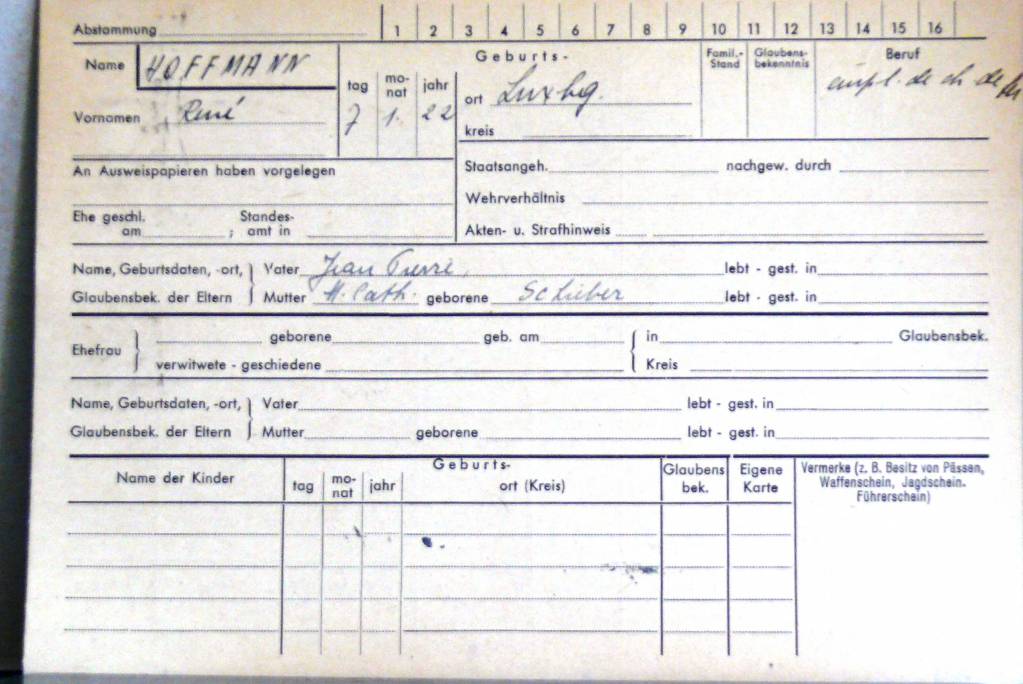 Abstammung 1 2 3 4 5 6 7 8 9 10 11 12 13 14 15 16
Name HOFFMANN
Vornamen René
Geburts-
tag monat jahr
7 1. 22
ort Luxbg.
kreis
Famil.-Stand
Glaubens-bekenntnis
Beruf
empl. de ch. de
An Ausweispapieren haben vorgelegen
Staatsangeh. nachgew. durch
Wehrverhältnis
Ehe geschl. am ; Standes-amt in
Akten- u. Strafhinweis
Name, Geburtsdaten, -ort, Vater Jean Pierre, lebt - gest. in
Glaubensbek. der Eltern Mutter M. Cath. geborene Schieber lebt - gest. in
Ehefrau geborene geb. am in Glaubensbek.
verwitwete - geschiedene Kreis
Name, Geburtsdaten, -ort, Vater lebt - gest. in
Glaubensbek. der Eltern Mutter geborene lebt - gest. in
Name der Kinder
Geburts-
tag mo-nat jahr ort (Kreis)
Glaubens bek.
Eigene Karte
Vermerke (z. B. Besitz von Pässen,
Waffenschein, Jagdschein.
Führerschein)